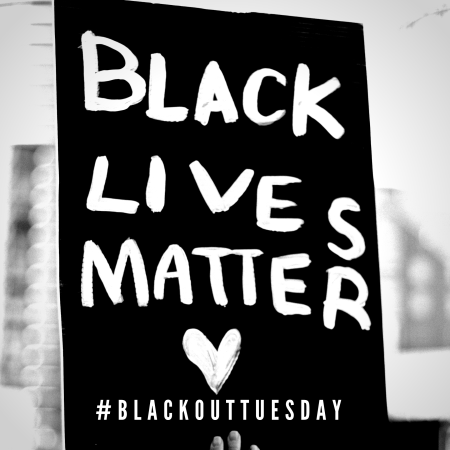 BLACK
LIVES
MATTER
#BLACKOUTTUESDAY